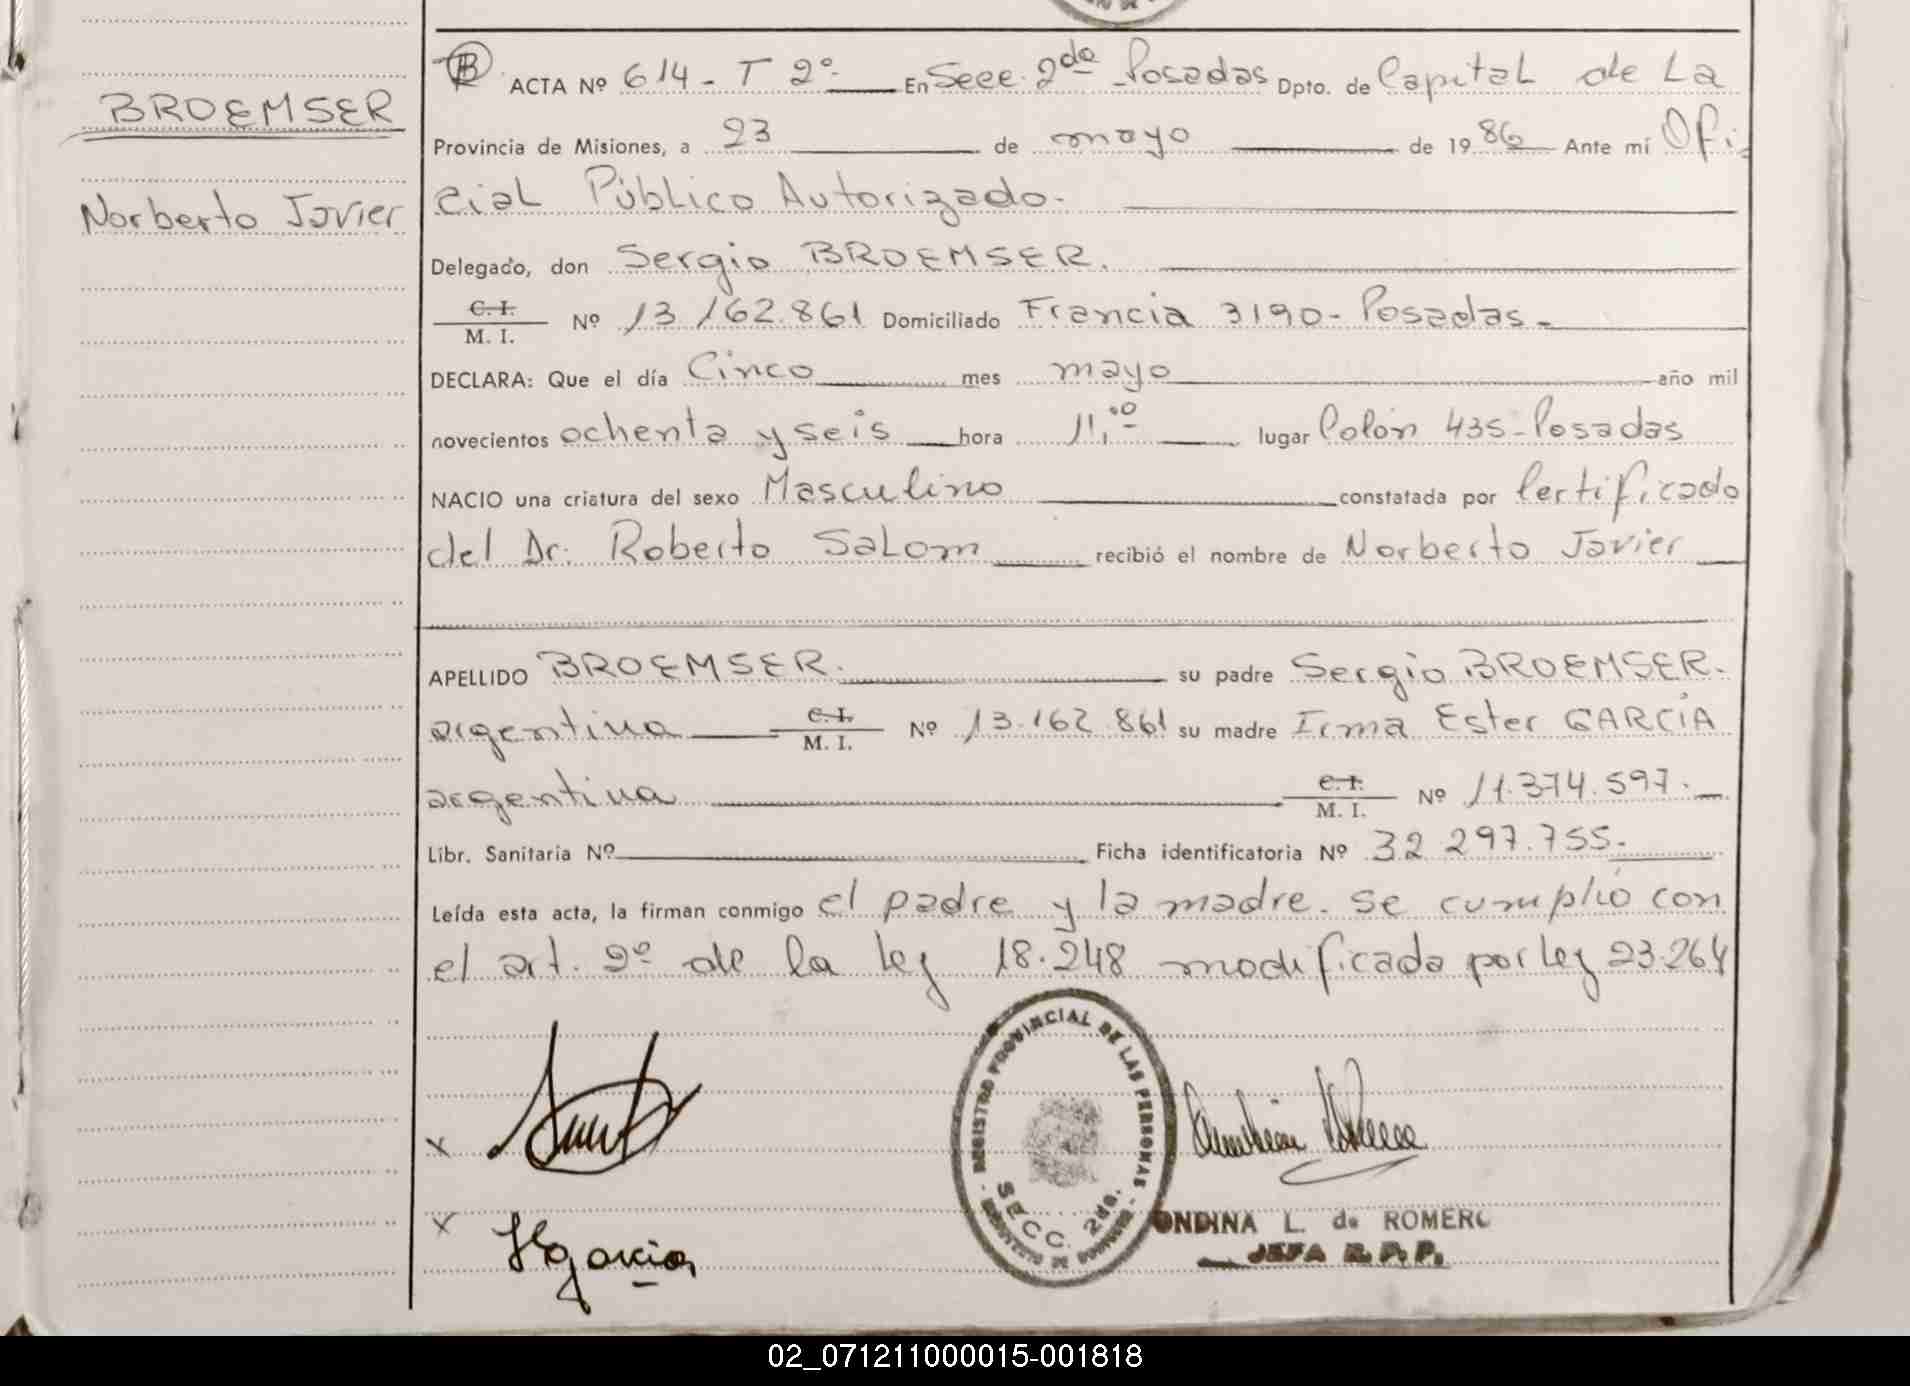 BROEMSER
Norberto Javier
ACTA Nº 614 - T 2º En Secc. 2da Posadas Dpto. de Capital de La
Provincia de Misiones, a 23 de mayo de 1986 Ante mí Ofi
cial Público Autorizado.
Delegado, don Sergio BROEMSER.
C. I.
M. I. Nº 13.162.861 Domiciliado Francia 3190 - Posadas -
DECLARA: Que el día Cinco mes mayo año mil
novecientos ochenta y seis hora 11,00 lugar Colón 435 - Posadas
NACIO una criatura del sexo Masculino constatada por Certificado
del Dr. Roberto Salom recibió el nombre de Norberto Javier
APELLIDO BROEMSER. su padre Sergio BROEMSER.
argentina C. I. M. I. Nº 13.162.861 su madre Irma Ester GARCÍA
argentina C. I. M. I. Nº 11.374.597.-
Libr. Sanitaria Nº Ficha identificatoria Nº 32.297.755.-
Leída esta acta, la firman conmigo el padre y la madre. Se cumplió con
el art. 2º de la ley 18.248 modificada por ley 23.264
REGISTRO PROVINCIAL DE LAS PERSONAS
SECC. 2da.
ONDINA L. de ROMERO
JEFA R. P. P.
02_071211000015-001818